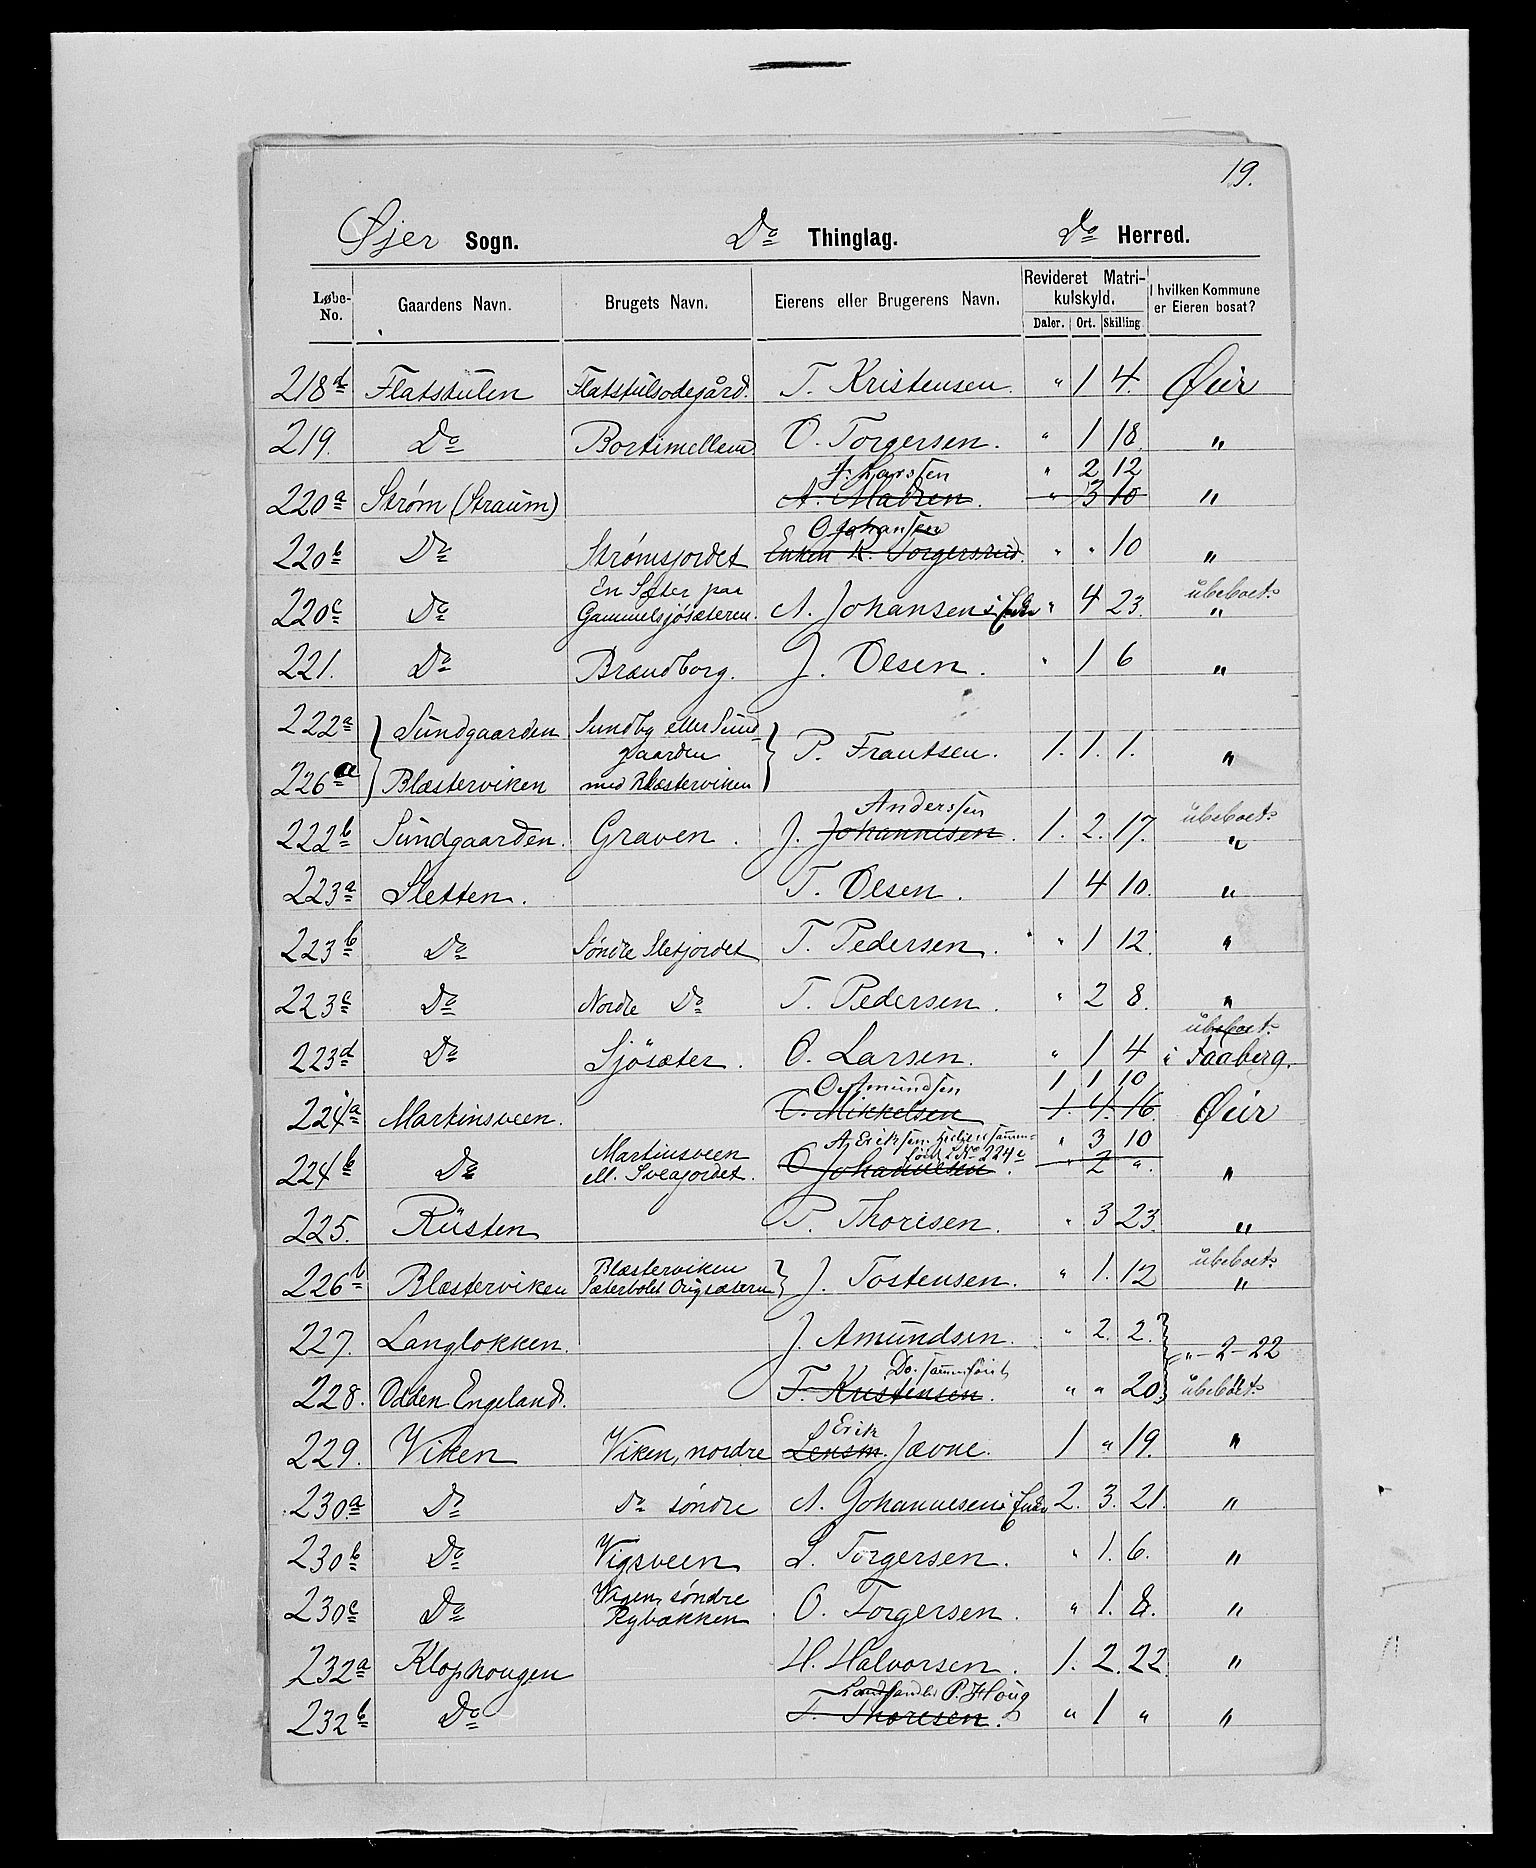 19.
Øjer Sogn. Do Thinglag. Do Herred.
Løbe-No. Gaardens Navn. Brugets Navn. Eierens eller Brugerens Navn. Revideret Matrikulskyld. I hvilken Kommune er Eieren bosat?
Daler. Ort. Skilling
218d Flatstulen Flatstulsødegård. T. Kristensen. " 1 4. Øier
219. Do Bortimellem O. Torgersen. " 1 18. "
J. Larssen " 2 12
220a Strøm (Straum) A. Madsen. " 3 10 "
O Johansen
220b Do Strømsjordet Enken K. Torgersrud. " " 10 "
En Sæter paa ubeboet.
220c Do Gammelsjøsæteren. A. Johansens Enke " 4 23. "
221. Do Brændborg. J. Olsen. " 1 6 "
222a } Sundgaarden Sundby eller Sund-
gaarden } P. Frantsen. 1. 1. 1. "
226a Blæsterviken med Blæsterviken
Anderssen ubeboet.
222b Sundgaarden. Graven. J. Johannesen. 1. 2. 17. "
223a Sletten. T. Olsen. 1 4 10. "
223b Do Søndre Sletjordet T. Pedersen. " 1 12. "
223c Do Nordre Do T. Pedersen. " 2 8. "
ubeboet.
223d Do Sjösæter. O. Larsen. " 1 4 i Faaberg.
O. Amundsen 1 1 10
224a Martinsveen. T. Mikkelsen 1. 4. 16. Øier
Martinsveen A Eriksen. " 3 10
No 224c
224b Do ell. Sveajordet. O Johannesen. " 2 ". "
225. Rusten P. Thoresen. " 3 23. "
Blæsterviken ubeboet.
226b Blæsterviken Sæterbolet } J. Tostensen. " 1. 12 "
227. Langlokken. J. Amundsen. " 2. 2. } " - 2 - 22
Do. sammenføiet
228. Odden Engeland. T. Kristensen. " " 20 } ubeboet.
Erik
229. Viken Viken, nordre Lensm. Jævne. 1 " 19. "
230a Do Do søndre A. Johannesens Enke 2. 3. 21. "
230b Do Vigsveen L. Torgersen. " 1. 6. "
Vigen, søndre
230c Do Rybækken O. Torgersen. " 1. 8. "
232a Klophougen H. Halvorsen. 1. 2. 22. "
Landhandler P. Houg
232b Do T. Thoresen. " 1 " "